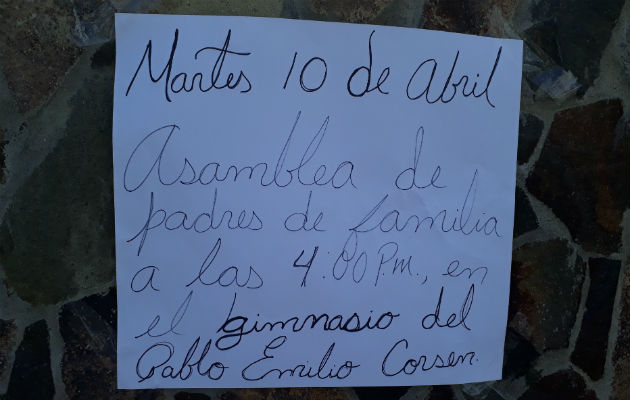 Martes 10 de Abril
Asamblea de
padres de familia
a las 4:00 P.m., en
el gimnasio del
Pablo Emilio Corsen.